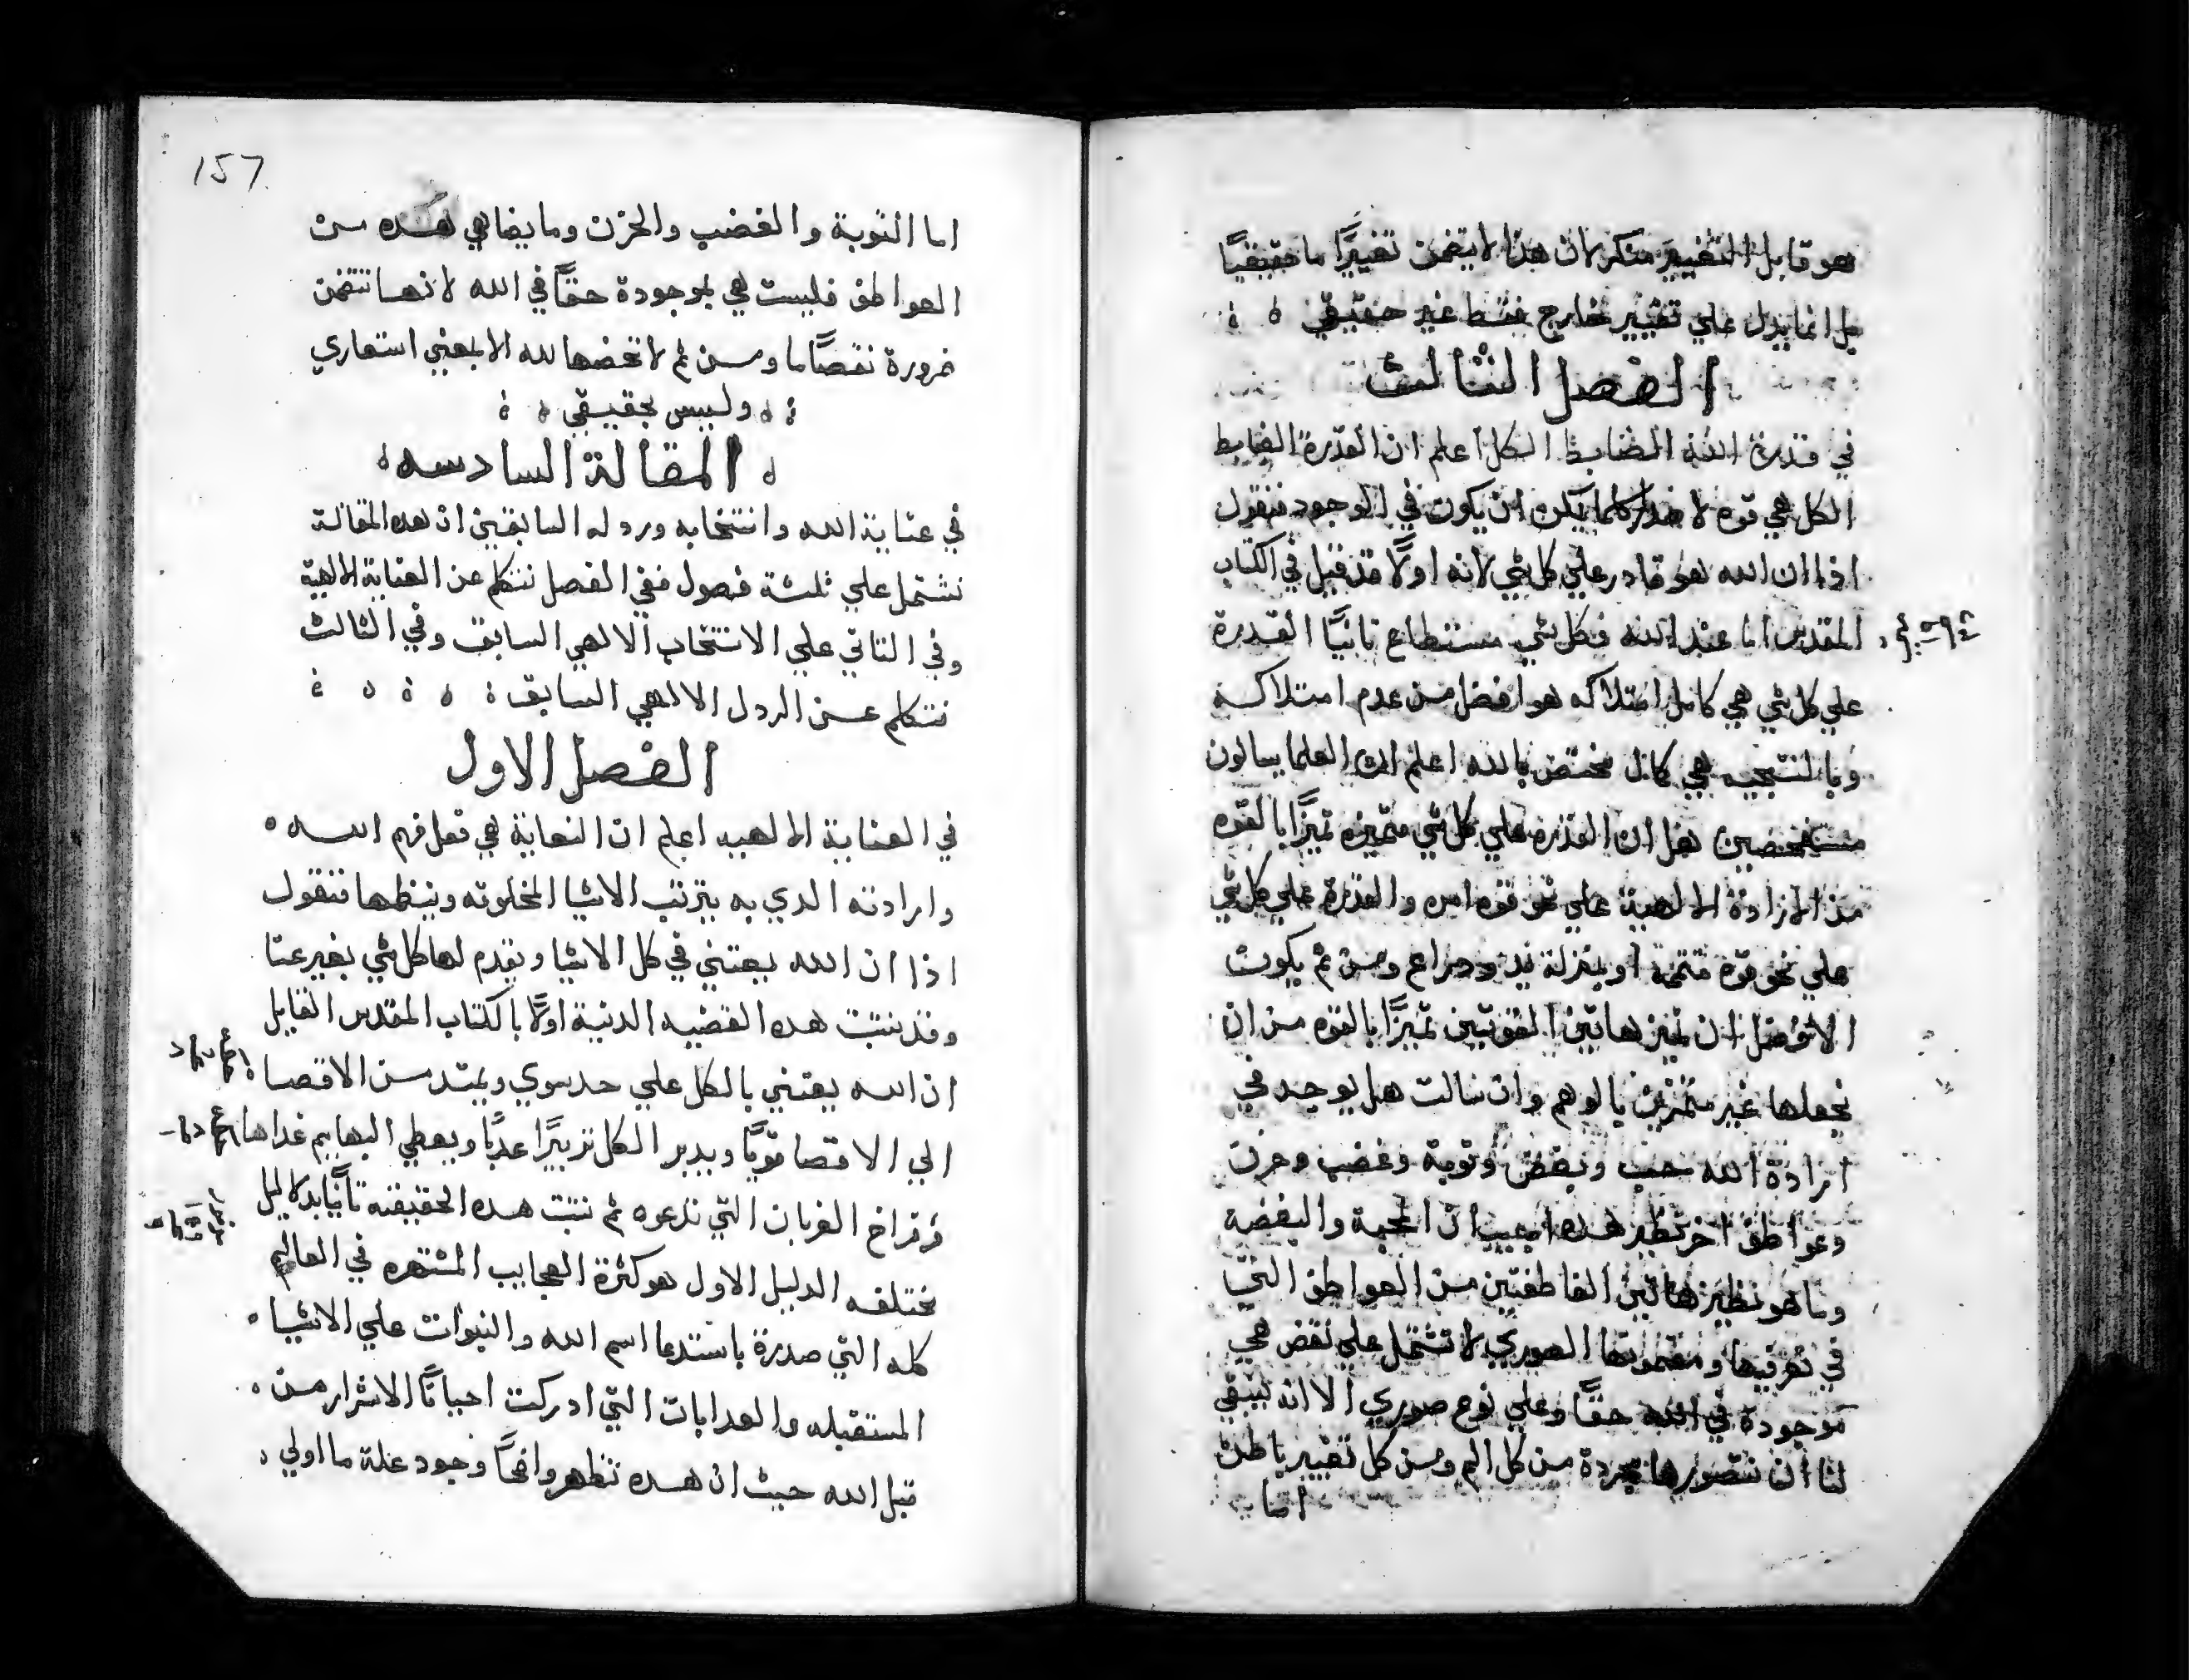 هو قابل التغيير منكر لان هذا لا يتضمن تغييرًا ما حقيقيًا
بل انما يدل علي تغيير خارج فقط غير حقيقي
الفصل الثالث
في قدرة الله الضابط الكل اعلم ان القدرة الضابط
الكل هي قوه لاصدار كلما يمكن ان يكون في الوجود فنقول
اذا ان الله هو قادر علي كل شي لانه اولًا قد قيل في الكتاب
المقدس اما عند الله فكل شي مستطاع ثانيًا القدرة
علي كل شي هي كامل امتلاكه هو افضل من عدم امتلاكه
وبالنتيجه هي كامل مختص بالله اعلم ان العلما يسالون
مستفحصين هل ان القدره علي كل شي متميزه تميزًا بالقوه
من الارادة الالهية علي نحو قوه امره والقدرة علي كل شي
علي نحو قوه متممه او بمنزلة يد وذراع ومن ثم يكون
الافضل ان نميز هاتين القوتين تميزًا بالقوه من ان
نجعلها غير متميزين بالوهم وان سالت هل يوجد في
ارادة الله حب وبغض وتوبة وغضب وحزن
وعواطف اخر نظير هذه اجيب ان المحبة والبغضة
وما هو نظير هاتين العاطفتين من العواطف التي
في تعريفها ومفهومها الصوري لا تشتمل علي نقص هي
موجودة في الله حقًا وعلي نوع صوري الا انه ينبغي
لنا ان نتصورها مجردة من كل الم ومن كل تغيير باطن
اما
157
اما التوبة والغضب والحزن وما يضاهي هذه من
العواطف فليست هي بموجودة حقًا في الله لانها تتضمن
ضرورة نقصًا ما ومن ثم لا نخصها لله الا بمعني استعاري
وليس بحقيقي
المقالة السادسه
في عناية الله وانتخابه ورذله السابقين ان هذه المقالة
تشتمل علي ثلثة فصول ففي الفصل نتكلم عن العناية الالهية
وفي الثاني علي الانتخاب الالهي السابق وفي الثالث
نتكلم عن الرذل الالهي السابق
الفصل الاول
في العناية الالهيه اعلم ان العناية هي فعل فهم الله
وارادته الذي به يترتب الاشيا المخلوقه وينظمها فنقول
اذا ان الله يعتني في كل الاشيا ويقدم لها كل شي بغير عنا
وقد نثبت هذه القضيه الدنية اولًا بالكتاب المقدس القايل
ان الله يعتني بالكل علي حد سوي ويمتد من الاقصا
الي الاقصا قويًا ويدبر الكل تدبيرًا عذبًا ويعطي البهايم غداها
وفراخ الغربان التي تدعوه ثم نثبت هذه الحقيقه ثانيًا بدلايل
مختلفه الدليل الاول هو كثرة العجايب المشتهره في العالم
كله التي صدرة باستدعا اسم الله والنبوات علي الاشيا
المستقبله والعدابات التي ادركت احيانًا الاشرار من
قبل الله حيث ان هذه تظهر واضحًا وجود علة ما اولي